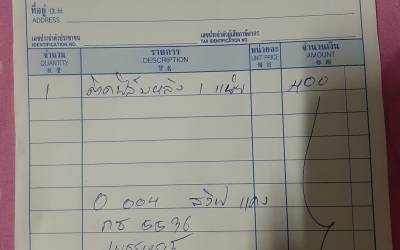 ที่อยู่
ADDRESS
เลขประจำตัวประชาชน เลขประจำตัวผู้เสียภาษีอากร
IDENTIFICATION NO. TAX IDENTIFICATION NO.
จำนวน รายการ หน่วยละ จำนวนเงิน
QUANTITY DESCRIPTION UNIT PRICE AMOUNT
1 ติดฟิล์มหลัง 1 แผ่น 400
0 004 สวิฟ แดง
กธ 5536